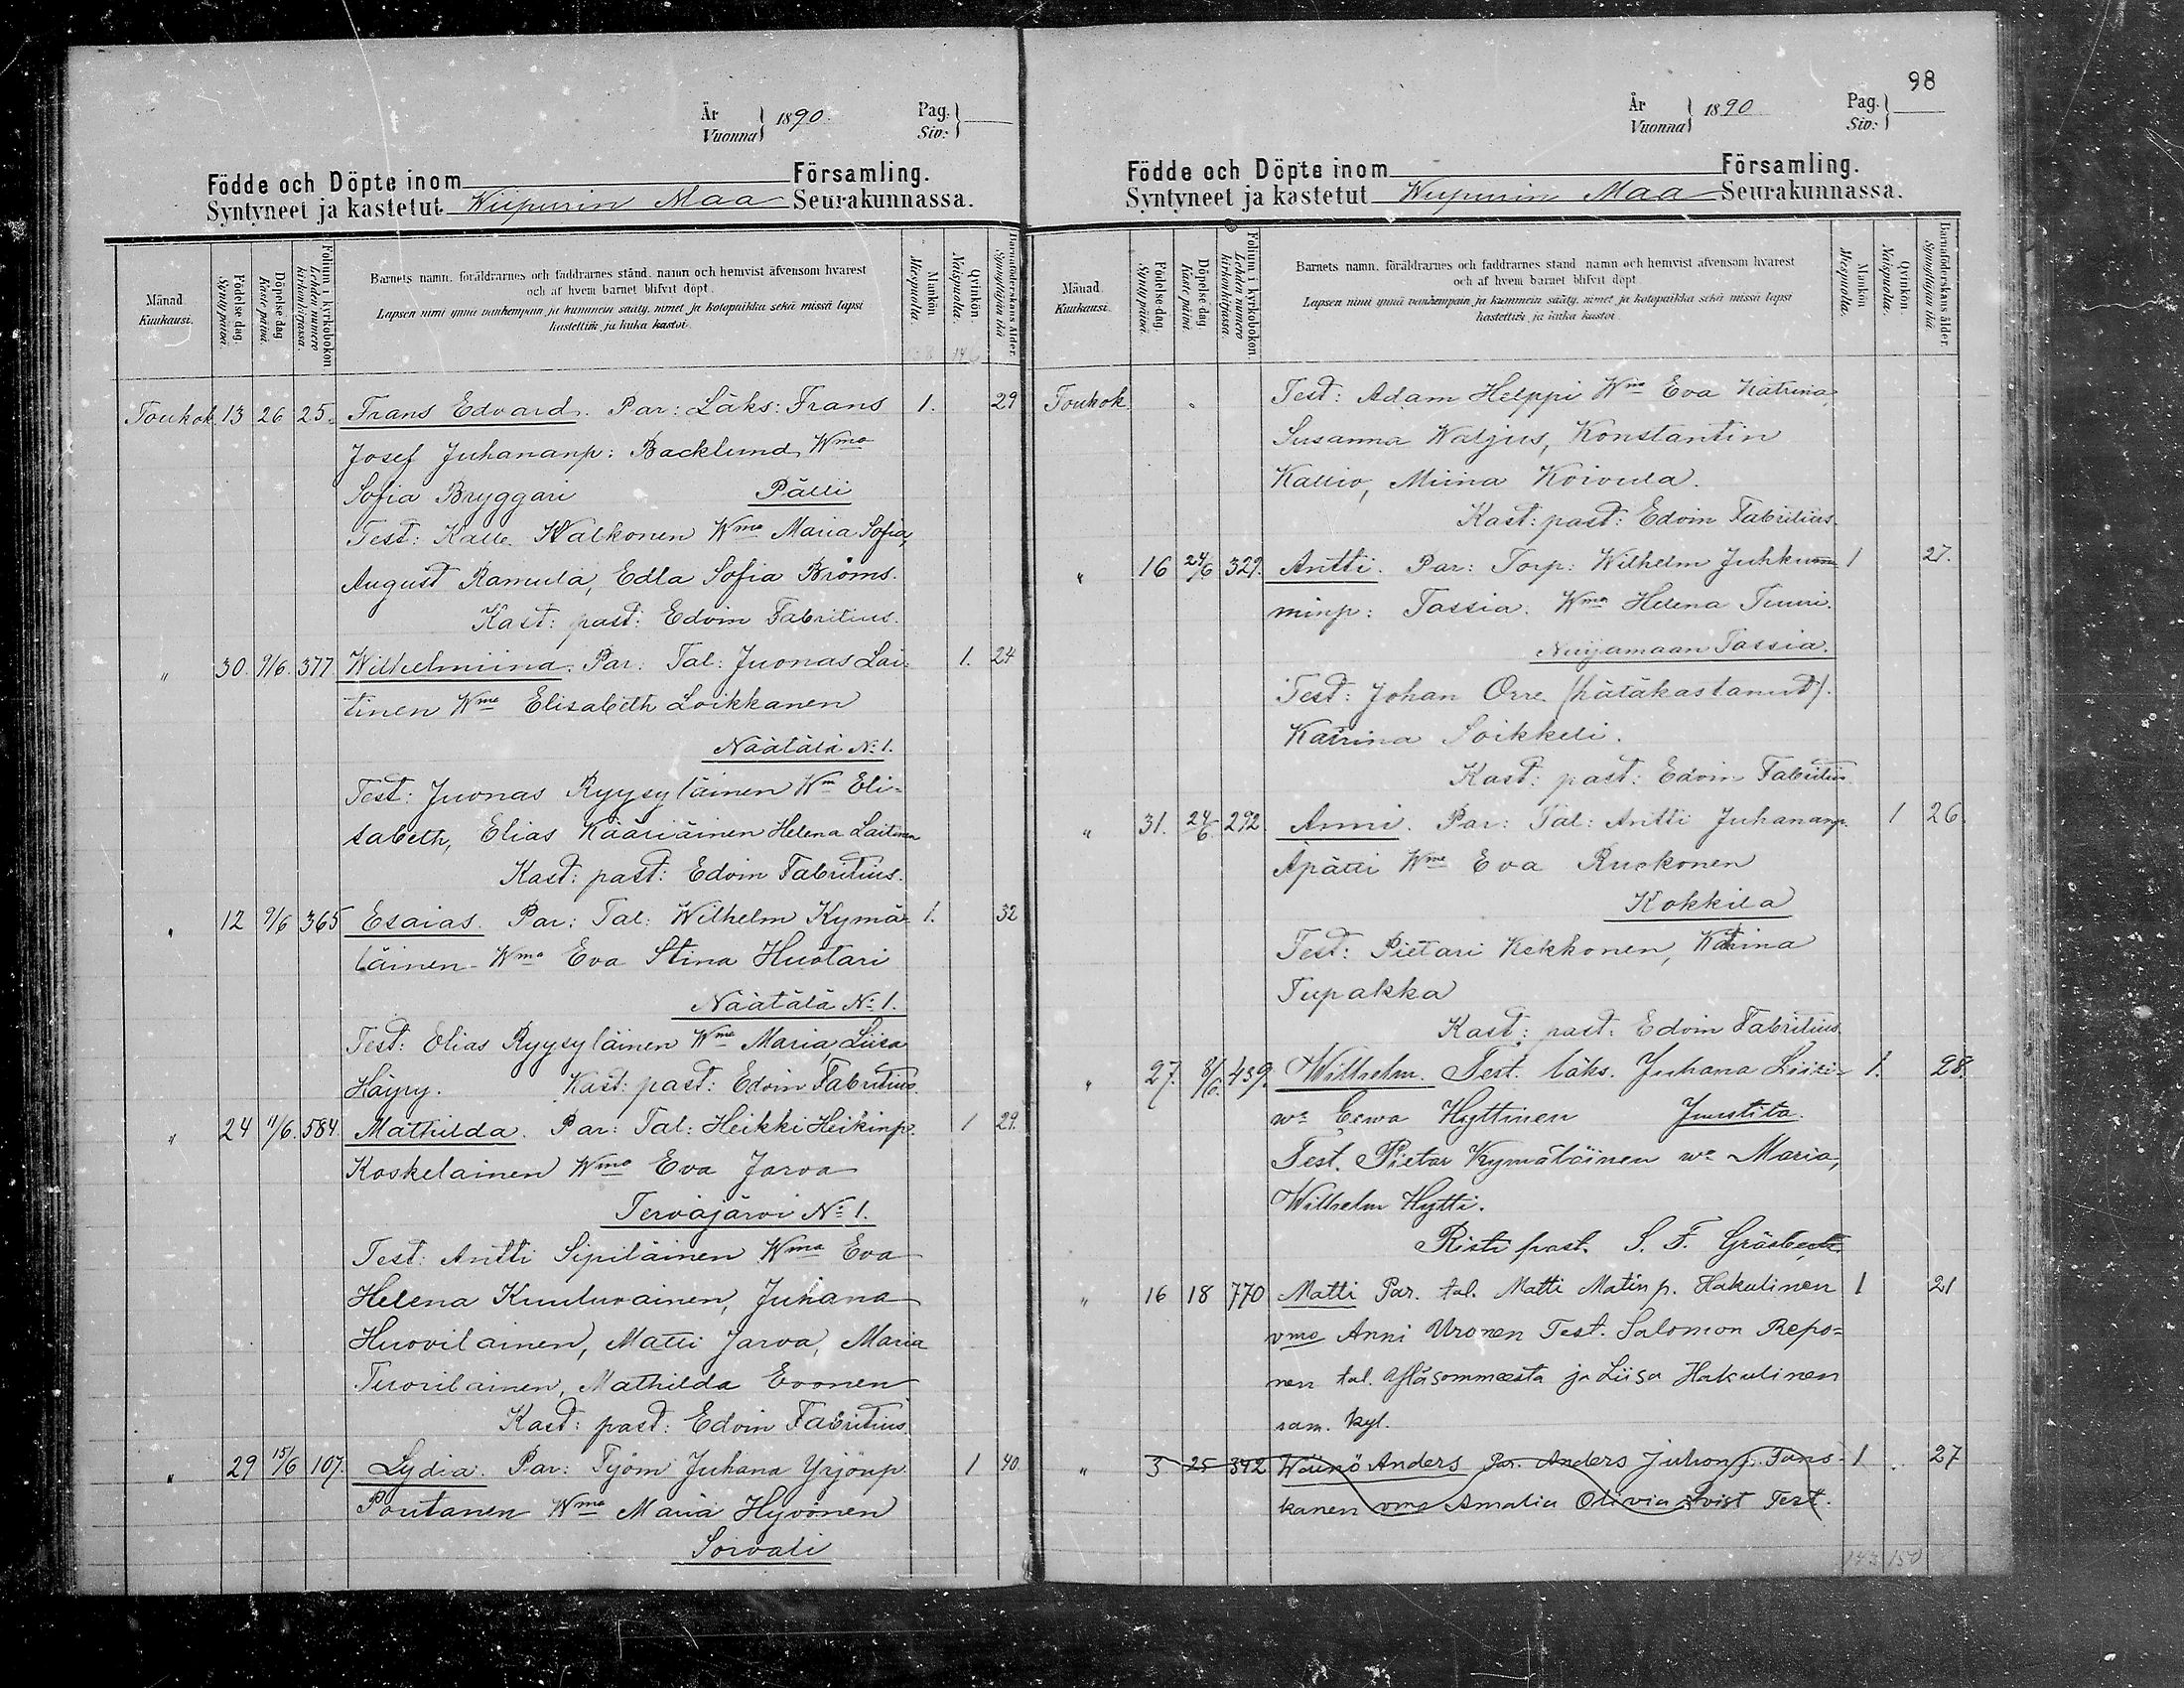 År
Vuonna } 1890.
Pag.
Siv: }
Födde och Döpte inom Församling.
Syntyneet ja kastetut Wiipurin Maa Seurakunnassa.
Månad. Kuukausi.
Födelse dag. Synty päivä.
Döpelse dag. Kaste päivä.
Folium i kyrkoboken. Lehden numero kirkonkirjassa.
Barnets namn, föräldrarnes och faddrarnes stånd, namn och hemvist äfvensom hvarest
och af hvem barnet blifvit döpt.
Lapsen nimi ynnä vanhempain ja kummein sääty, nimet ja kotopaikka sekä missä lapsi
kastettiin ja kuka kastoi.
Mankön. Miespuolia.
Qvinkön. Naispuolia.
Barnaföderskans ålder. Synnyttäjän ikä.
Toukok. 13 26 25. Frans Edvard. Par: Läks: Frans 1. 29
Josef Juhananp: Backlund, Wmo
Sofia Bryggari Pälli
Test: Kalle Walkonen Wmo Maria Sofia,
August Ramula, Edla Sofia Bröms.
Kast: past: Edvin Fabritius.
" 30. 9/6. 377. Wilhelmiina. Par: Tal: Juonas Lai- 1. 24
tinen Wmo Elisabeth Loikkanen
Näätälä No 1.
Test: Juonas Ryysyläinen Wm Eli-
sabeth, Elias Kääriäinen Helena Laitinen
Kast: past: Edvin Fabritius.
" 12 9/6 365 Esaias. Par: Tal: Wilhelm Kymä- 1. 32
läinen Wmo Eva Stina Huotari
Näätälä No 1.
Test: Elias Ryysyläinen Wmo Maria, Liisa
Häyry. Kast: past: Edvin Fabritius.
" 24 11/6. 584. Mathilda. Par: Tal: Heikki Heikinp. 1 29.
Koskelainen Wmo Eva Jarva
Terväjärvi No 1.
Test: Antti Sipiläinen Wmo Eva
Helena Kuuluvainen, Juhana
Huovilainen, Matti Jarva, Maria
Tuorilainen, Mathilda Evonen
Kast: past: Edvin Fabritius.
" 29 15/6 107. Lydia. Par: Työm Juhana Yrjönp. 1 40.
Poutanen Wmo Maria Hyvönen
Sorvali
98
År
Vuonna } 1890
Pag.
Siv: }
Födde och Döpte inom Församling.
Syntyneet ja kastetut Wiipurin Maa Seurakunnassa.
Månad. Kuukausi.
Födelse dag. Synty päivä.
Döpelse dag. Kaste päivä.
Folium i kyrkoboken. Lehden numero kirkonkirjassa.
Barnets namn, föräldrarnes och faddrarnes stånd, namn och hemvist äfvensom hvarest
och af hvem barnet blifvit döpt.
Lapsen nimi ynnä vanhempain ja kummein sääty, nimet ja kotopaikka sekä missä lapsi
kastettiin ja kuka kastoi.
Mankön. Miespuolia.
Qvinkön. Naispuolia.
Barnaföderskans ålder. Synnyttäjän ikä.
Toukok Test: Adam Helppi Wmo Eva Katrina,
Susanna Waljus, Konstantin
Kallio, Miina Koivula.
Kast: past: Edvin Fabritius.
" 16 24/6 329. Antti. Par: Torp: Wilhelm Juhkum 1 27.
minp: Tassia. Wmo Helena Tuuri.
Nuijamaan Tassia.
Test: Johan Orre (hätäkastanut).
Katrina Soikkeli.
Kast: past: Edvin Fabritius
" 31. 24/6. 292. Anni. Par: Tal: Antti Juhananp. 1 26.
Äpätti Wmo Eva Ruokonen
Kokkila
Test: Pietari Kekkonen, Katrina
Tupakka
Kast: past: Edvin Fabritius
" 27. 8/6. 459. Wilhelm. Test. läks. Juhana Liizi- 1. 28.
wo Eewa Hyttinen Juustila.
Test. Pietar Kymäläinen wo Maria,
Wilhelm Hytti.
Risti past. S. F. Gräsbeck.
" 16 18 770 Matti Par. tal. Matti Matinp. Hakulinen 1 21
vmo Anni Uronen Test. Salomon Repo=
nen tal. Yläsommeesta ja Liisa Hakulinen
sam. kyl.
" 3 25 342 Wäinö Anders Par. Anders Juhonp. Tans- 1 27
kanen vmo Amalia Olivia Qvist Test.
143 150